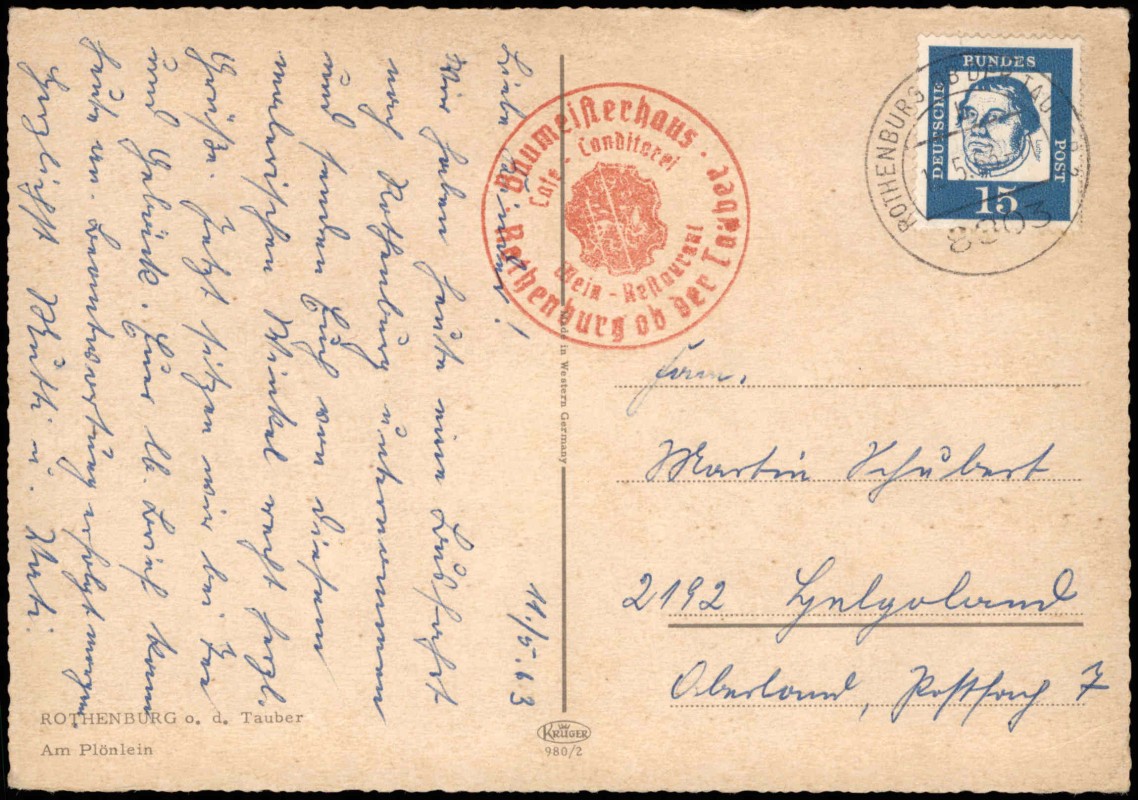 11./5. 63
Liebe Kinder!
Wir haben heute eine Busfahrt
nach Rothenburg unternommen
und senden Euch von diesem
malerischen Winkel recht herzl.
Grüße. Jetzt sitzen wir bei Tee
und Gebäck. Euer lb. Brief kam
heute an. Beantwortung erfolgt morgen.
Herzlichst u. Vati.
ROTHENBURG o. d. Tauber
Am Plönlein
Baumeisterhaus · Rothenburg ob der Tauber ·
Cafe - Conditorei
Wein - Restaurant
Made in Western Germany
KRÜGER
980/2
DEUTSCHE BUNDESPOST
Luther
15
ROTHENBURG OB DER TAUBER
8803
Fam.
Martin Schubert
2192 Helgoland
Oberland, Postfach 7